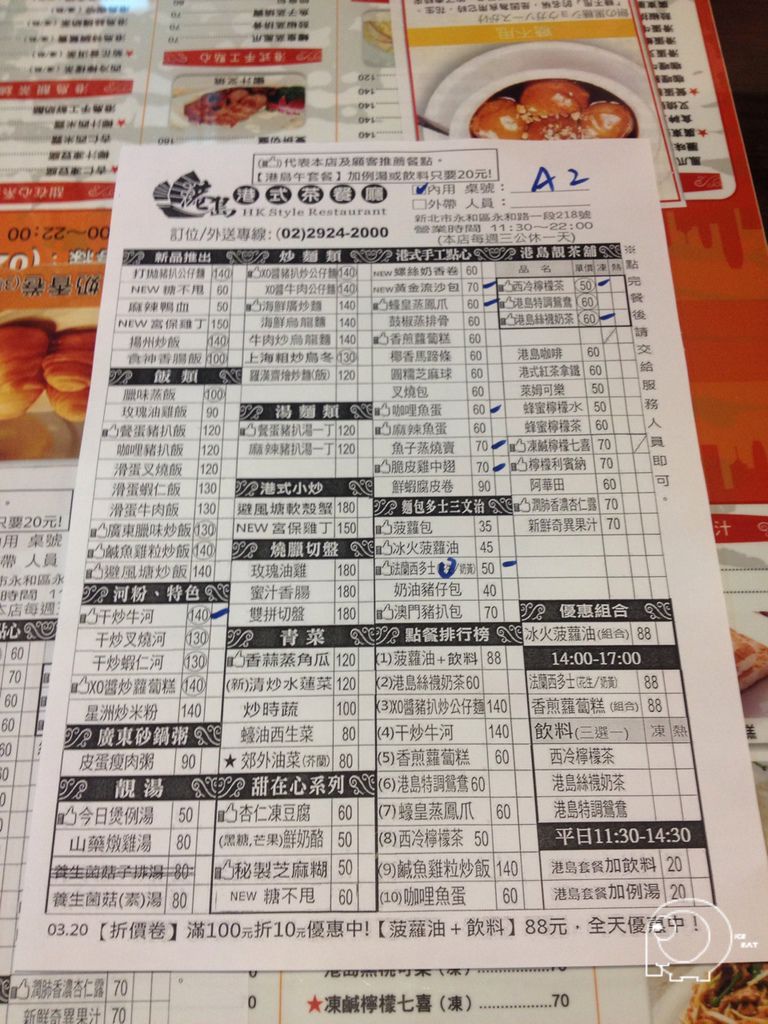 (👍)代表本店及顧客推薦餐點。
【港島午套餐】加例湯或飲料只要20元!
港島 港式茶餐廳
HK Style Restaurant
訂位/外送專線: (02)2924-2000
☑內用 桌號: A2
☐外帶 人員:
新北市永和區永和路一段218號
營業時間 11:30～22:00
(本店每週三公休一天)
※點完餐後請交給服務人員即可。
新品推出
打拋豬扒公仔麵 140
NEW 糖不甩 60
麻辣鴨血 50
NEW 宮保雞丁 150
揚州炒飯 100
食神香腸飯 100
飯類
臘味蒸飯 100
玫瑰油雞飯 90
餐蛋豬扒飯 120
咖哩豬扒飯 120
滑蛋叉燒飯 120
滑蛋蝦仁飯 130
滑蛋牛肉飯 130
廣東臘味炒飯 130
鹹魚雞粒炒飯 140
避風塘炒飯 140
河粉、特色
干炒牛河 140
干炒叉燒河 130
干炒蝦仁河 130
XO醬炒蘿蔔糕 140
星洲炒米粉 140
廣東砂鍋粥
皮蛋瘦肉粥 90
靚湯
今日煲例湯 50
山藥燉雞湯 80
養生菌菇子排湯 80
養生菌菇(素)湯 80
炒麵類
XO醬豬扒炒公仔麵 140
XO醬牛肉公仔麵 140
海鮮廣炒麵 140
海鮮烏龍麵 140
牛肉炒烏龍麵 140
上海粗炒烏冬 130
羅漢齋燴炒麵(飯) 120
湯麵類
餐蛋豬扒湯一丁 120
麻辣豬扒湯一丁 120
港式小炒
避風塘軟殼蟹 180
NEW 宮保雞丁 150
燒臘切盤
玫瑰油雞 180
蜜汁香腸 180
雙拼切盤 180
青菜
香蒜蒸角瓜 120
(新)清炒水蓮菜 120
炒時蔬 100
蠔油西生菜 80
★郊外油菜(芥蘭) 80
甜在心系列
杏仁凍豆腐 60
(黑糖,芒果)鮮奶酪 50
秘製芝麻糊 50
NEW 糖不甩 60
港式手工點心
NEW 螺絲奶香卷 60
NEW 黃金流沙包 70
蠔皇蒸鳳爪 60
鼓椒蒸排骨 60
香煎蘿蔔糕 60
椰香馬蹄條 60
圓糯芝麻球 60
叉燒包 60
咖哩魚蛋 60
麻辣魚蛋 60
魚子蒸燒賣 70
脆皮雞中翅 70
鮮蝦腐皮卷 90
麵包多士三文治
菠蘿包 35
冰火菠蘿油 45
法蘭西多士(花生/奶黃) 50
奶油豬仔包 40
澳門豬扒包 70
點餐排行榜
(1)菠蘿油+飲料 88
(2)港島絲襪奶茶 60
(3)XO醬豬扒炒公仔麵 140
(4)干炒牛河 140
(5)香煎蘿蔔糕 60
(6)港島特調鴛鴦 60
(7)蠔皇蒸鳳爪 60
(8)西冷檸檬茶 50
(9)鹹魚雞粒炒飯 140
(10)咖哩魚蛋 60
港島靚茶舖
品 名 單價 凍 熱
西冷檸檬茶 50
港島特調鴛鴦 60
港島絲襪奶茶 60
港島咖啡 60
港式紅茶拿鐵 60
萊姆可樂 50
蜂蜜檸檬水 50
蜂蜜檸檬茶 60
凍鹹檸檬七喜 70
檸檬利賓納 70
阿華田 60
潤肺香濃杏仁露 70
新鮮奇異果汁 70
優惠組合
冰火菠蘿油(組合) 88
14:00-17:00
法蘭西多士(花生/奶黃) 88
香煎蘿蔔糕(組合) 88
飲料(三選一) 凍 熱
西冷檸檬茶
港島絲襪奶茶
港島特調鴛鴦
平日11:30-14:30
港島套餐加飲料 20
港島套餐加例湯 20
03.20【折價卷】滿100元折10元優惠中!【菠蘿油+飲料】88元，全天優惠中！
潤肺香濃杏仁露 70
新鮮奇異果汁 70
★凍鹹檸檬七喜（凍）..............70
ICE EAT